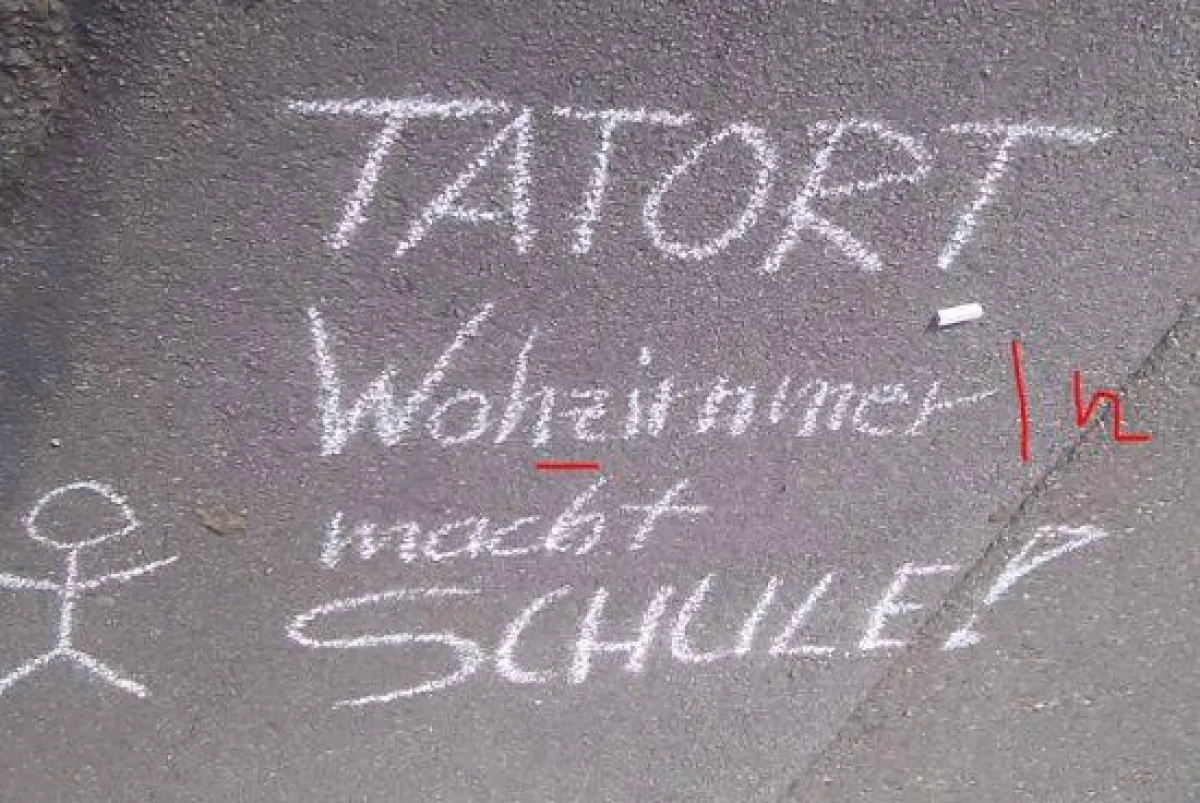 TATORT
Wohzimmer | n
macht
SCHULE!